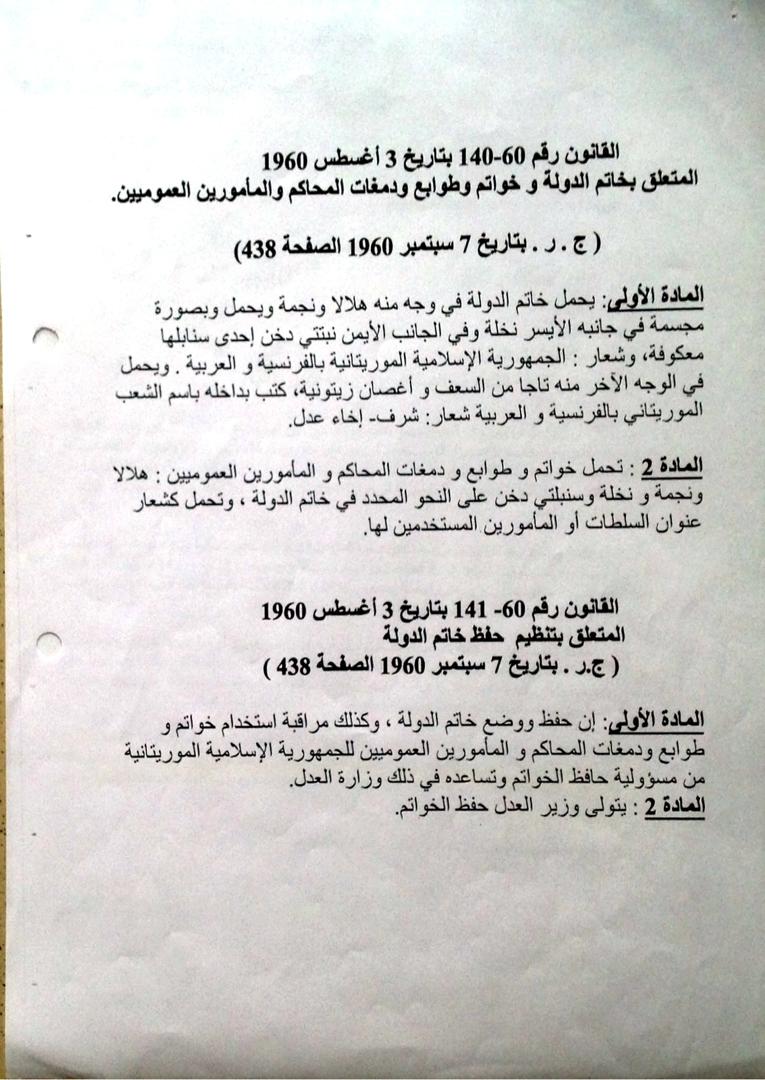 القانون رقم 60-140 بتاريخ 3 أغسطس 1960
المتعلق بخاتم الدولة و خواتم وطوابع ودمغات المحاكم والمأمورين العموميين.
( ج . ر . بتاريخ 7 سبتمبر 1960 الصفحة 438)
المادة الأولى: يحمل خاتم الدولة في وجه منه هلالا ونجمة ويحمل وبصورة
مجسمة في جانبه الأيسر نخلة وفي الجانب الأيمن نبتتي دخن إحدى سنابلها
معكوفة، وشعار : الجمهورية الإسلامية الموريتانية بالفرنسية و العربية . ويحمل
في الوجه الآخر منه تاجا من السعف و أغصان زيتونية، كتب بداخله باسم الشعب
الموريتاني بالفرنسية و العربية شعار: شرف- إخاء عدل.
المادة 2 : تحمل خواتم و طوابع و دمغات المحاكم و المأمورين العموميين : هلالا
ونجمة و نخلة وسنبلتي دخن على النحو المحدد في خاتم الدولة ، وتحمل كشعار
عنوان السلطات أو المأمورين المستخدمين لها.
القانون رقم 60- 141 بتاريخ 3 أغسطس 1960
المتعلق بتنظيم حفظ خاتم الدولة
( ج.ر . بتاريخ 7 سبتمبر 1960 الصفحة 438 )
المادة الأولى: إن حفظ ووضع خاتم الدولة ، وكذلك مراقبة استخدام خواتم و
طوابع ودمغات المحاكم و المأمورين العموميين للجمهورية الإسلامية الموريتانية
من مسؤولية حافظ الخواتم وتساعده في ذلك وزارة العدل.
المادة 2 : يتولى وزير العدل حفظ الخواتم.